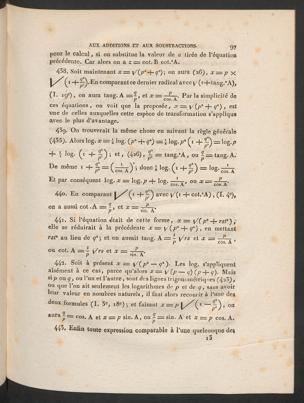 AUX ADDITIONS ET AUX SOUSTRACTIONS. 97
pour le calcul, si on substitue la valeur de a tirée de l'équation
précédente. Car alors on a z = cot. B cot.²A.
438. Soit maintenant x = √(p² + q²); on aura (26), x = p ×
√(1 + q²/p²). En comparant ce dernier radical avec √(1 + tang.²A),
(I. 19°), on aura tang. A = q/p, et x = p/cos. A. Par la simplicité de
ces équations, on voit que la proposée, x = √(p² + q²), est
une de celles auxquelles cette espèce de transformation s'applique
avec le plus d'avantage.
439. On trouverait la même chose en suivant la règle générale
(435). Alors log. x = ½ log. (p² + q²) = ½ log. p² (1 + q²/p²) = log. p
+ ½ log. (1 + q²/p²); et, (426), q²/p² = tang.²A, ou q/p = tang. A.
De même 1 + q²/p² = (1/cos. A)²; donc ½ log. (1 + q²/p²) = log. 1/cos. A.
Et par conséquent log. x = log. p + log. 1/cos. A, ou x = p/cos. A.
440. En comparant √(1 + q²/p²) avec √(1 + cot.²A), (I. 4°),
on a aussi cot. A = q/p, et x = p/sin. A.
441. Si l'équation était de cette forme, x = √(p² + rs²);
elle se réduirait à la précédente x = √(p² + q²), en mettant
rs² au lieu de q²; et on aurait tang. A = s/p √r et x = p/cos. A,
ou cot. A = s/p √r et x = p/sin. A.
442. Soit à présent x = √(p² − q²). Les log. s'appliquent
aisément à ce cas, parce qu'alors x = √(p − q) (p + q). Mais
si p ou q, ou l'un et l'autre, sont des lignes trigonométriques (423),
ou que l'on ait seulement les logarithmes de p et de q, sans avoir
leur valeur en nombres naturels, il faut alors recourir à l'une des
deux formules (I. 3°, 18°); et faisant x = p √(1 − q²/p²); on
aura q/p = cos. A et x = p sin. A, ou q/p = sin. A et x = p cos. A.
443. Enfin toute expression comparable à l'une quelconque des
13